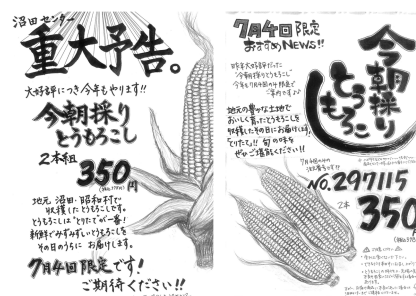 沼田センター
重大予告。
大好評につき今年もやります!!
今朝採り
とうもろこし
2本組
350円
地元 沼田・昭和村で
収穫したとうもろこしです。
とうもろこしは"とりたて"が一番!
新鮮でみずみずしいとうもろこしを
その日のうちに お届けします。
7月4回限定です!
ご期待ください!!
7月4回限定
おすすめNEWS!!
昨年大好評だった
"今朝採りとうもろこし"
今年も7月4回の
今朝採り
とうもろこし
地元の豊かな土地で
おいしく育ったとうもろこしを
収穫したその日にお届けします!
"とりたて"!! 旬の味を
ぜひご堪能ください!!
7月4回の
No.297115
2本
350